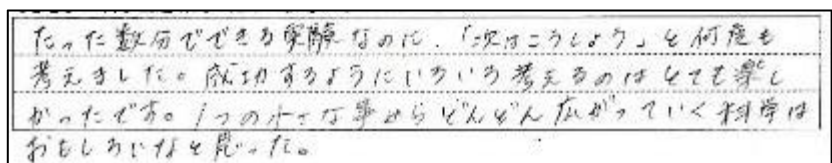 たった数分でできる実験なのに、「次はこうしよう」と何度も
考えました。成功するようにいろいろ考えるのはとても楽し
かったです。1つの小さな事からどんどん広がっていく科学は
おもしろいなと思った。